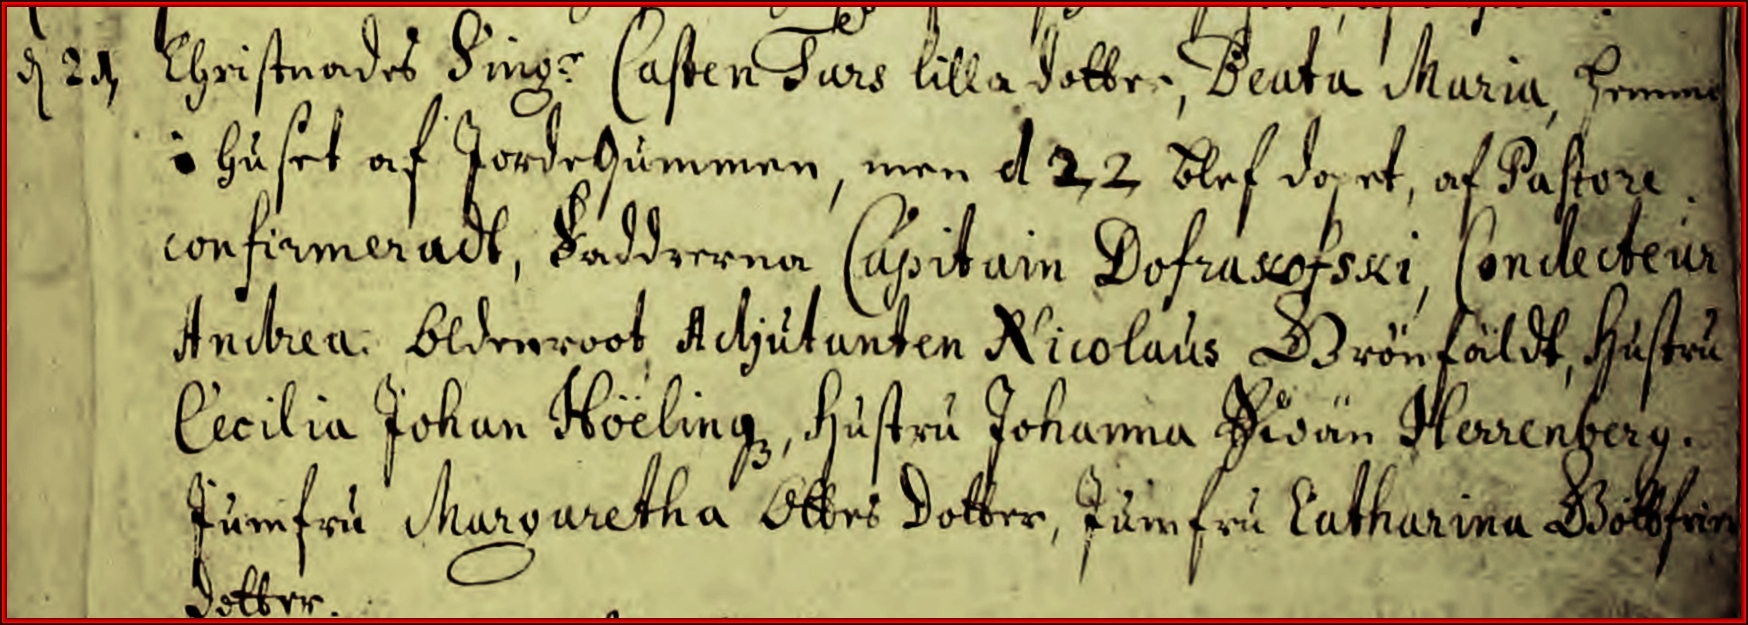 d 21, Christnades Sing:r Casten Turs lilla dotter, Beata Maria, hemma
i huset af Jordegummen, men d 22 blef döpet, af Pastore
confirmeradt, Faddrerna Capitain Dofrakofski, Condecteur
Andrea: Oldenroot Adjutanten Nicolaus Grönfäldt, Hustru
Cecilia Johan Höelingz, Hustru Johanna Herrenberg.
Jumfru Margaretha Ottes Dotter, Jumfru Catharina
dotter.